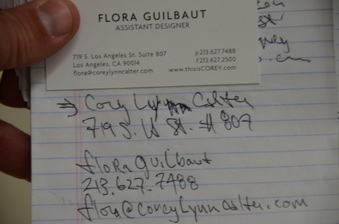 FLORA GUILBAUT
ASSISTANT DESIGNER
719 S. Los Angeles St. Suite 807
Los Angeles, CA 90014
flora@corelynncalter.com
p 213.627.7488
f 213.627.2500
www.thisisCOREY.com
Cory Lynn Calter
719 S. LA St. # 807
flora guilbaut
213.627-7488
flora@coreylynncalter.com